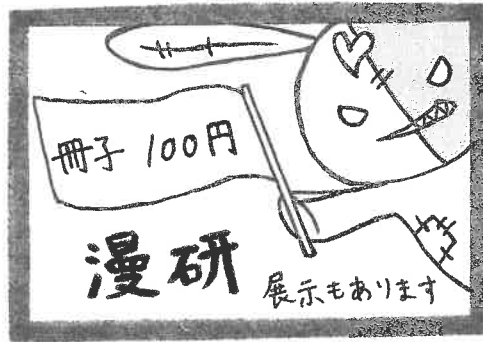 冊子 100円
漫研
展示もあります